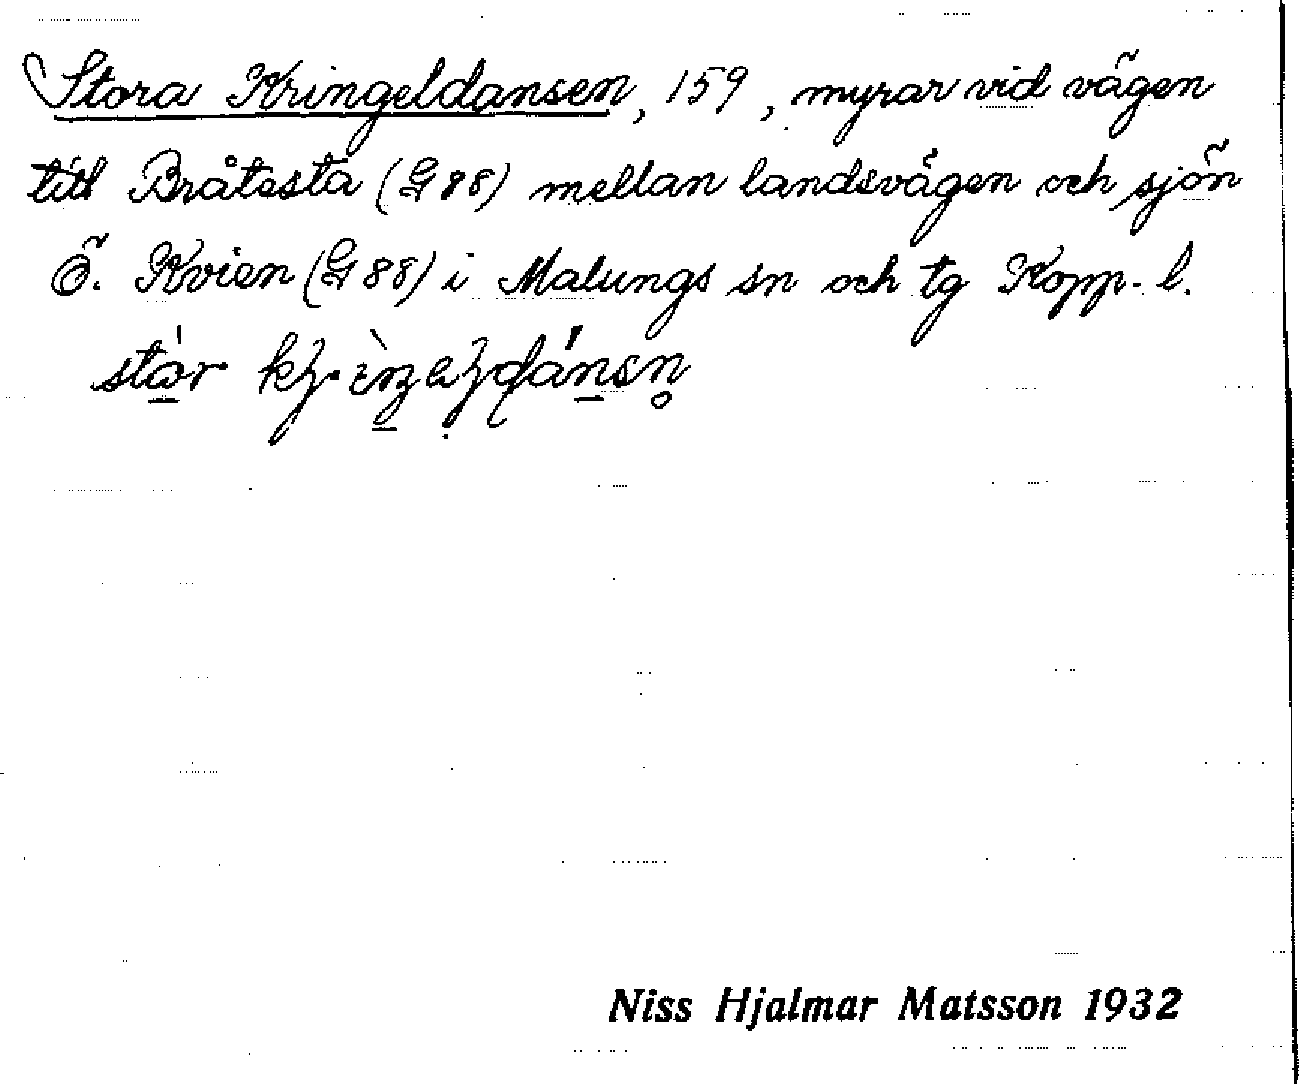 Stora Kringeldansen, 159, myrar vid vägen
till Bråtesta (G88) mellan landsvägen och sjön
Ö. Kvien (G88) i Malungs sn och tg Kopp. l.
Niss Hjalmar Matsson 1932